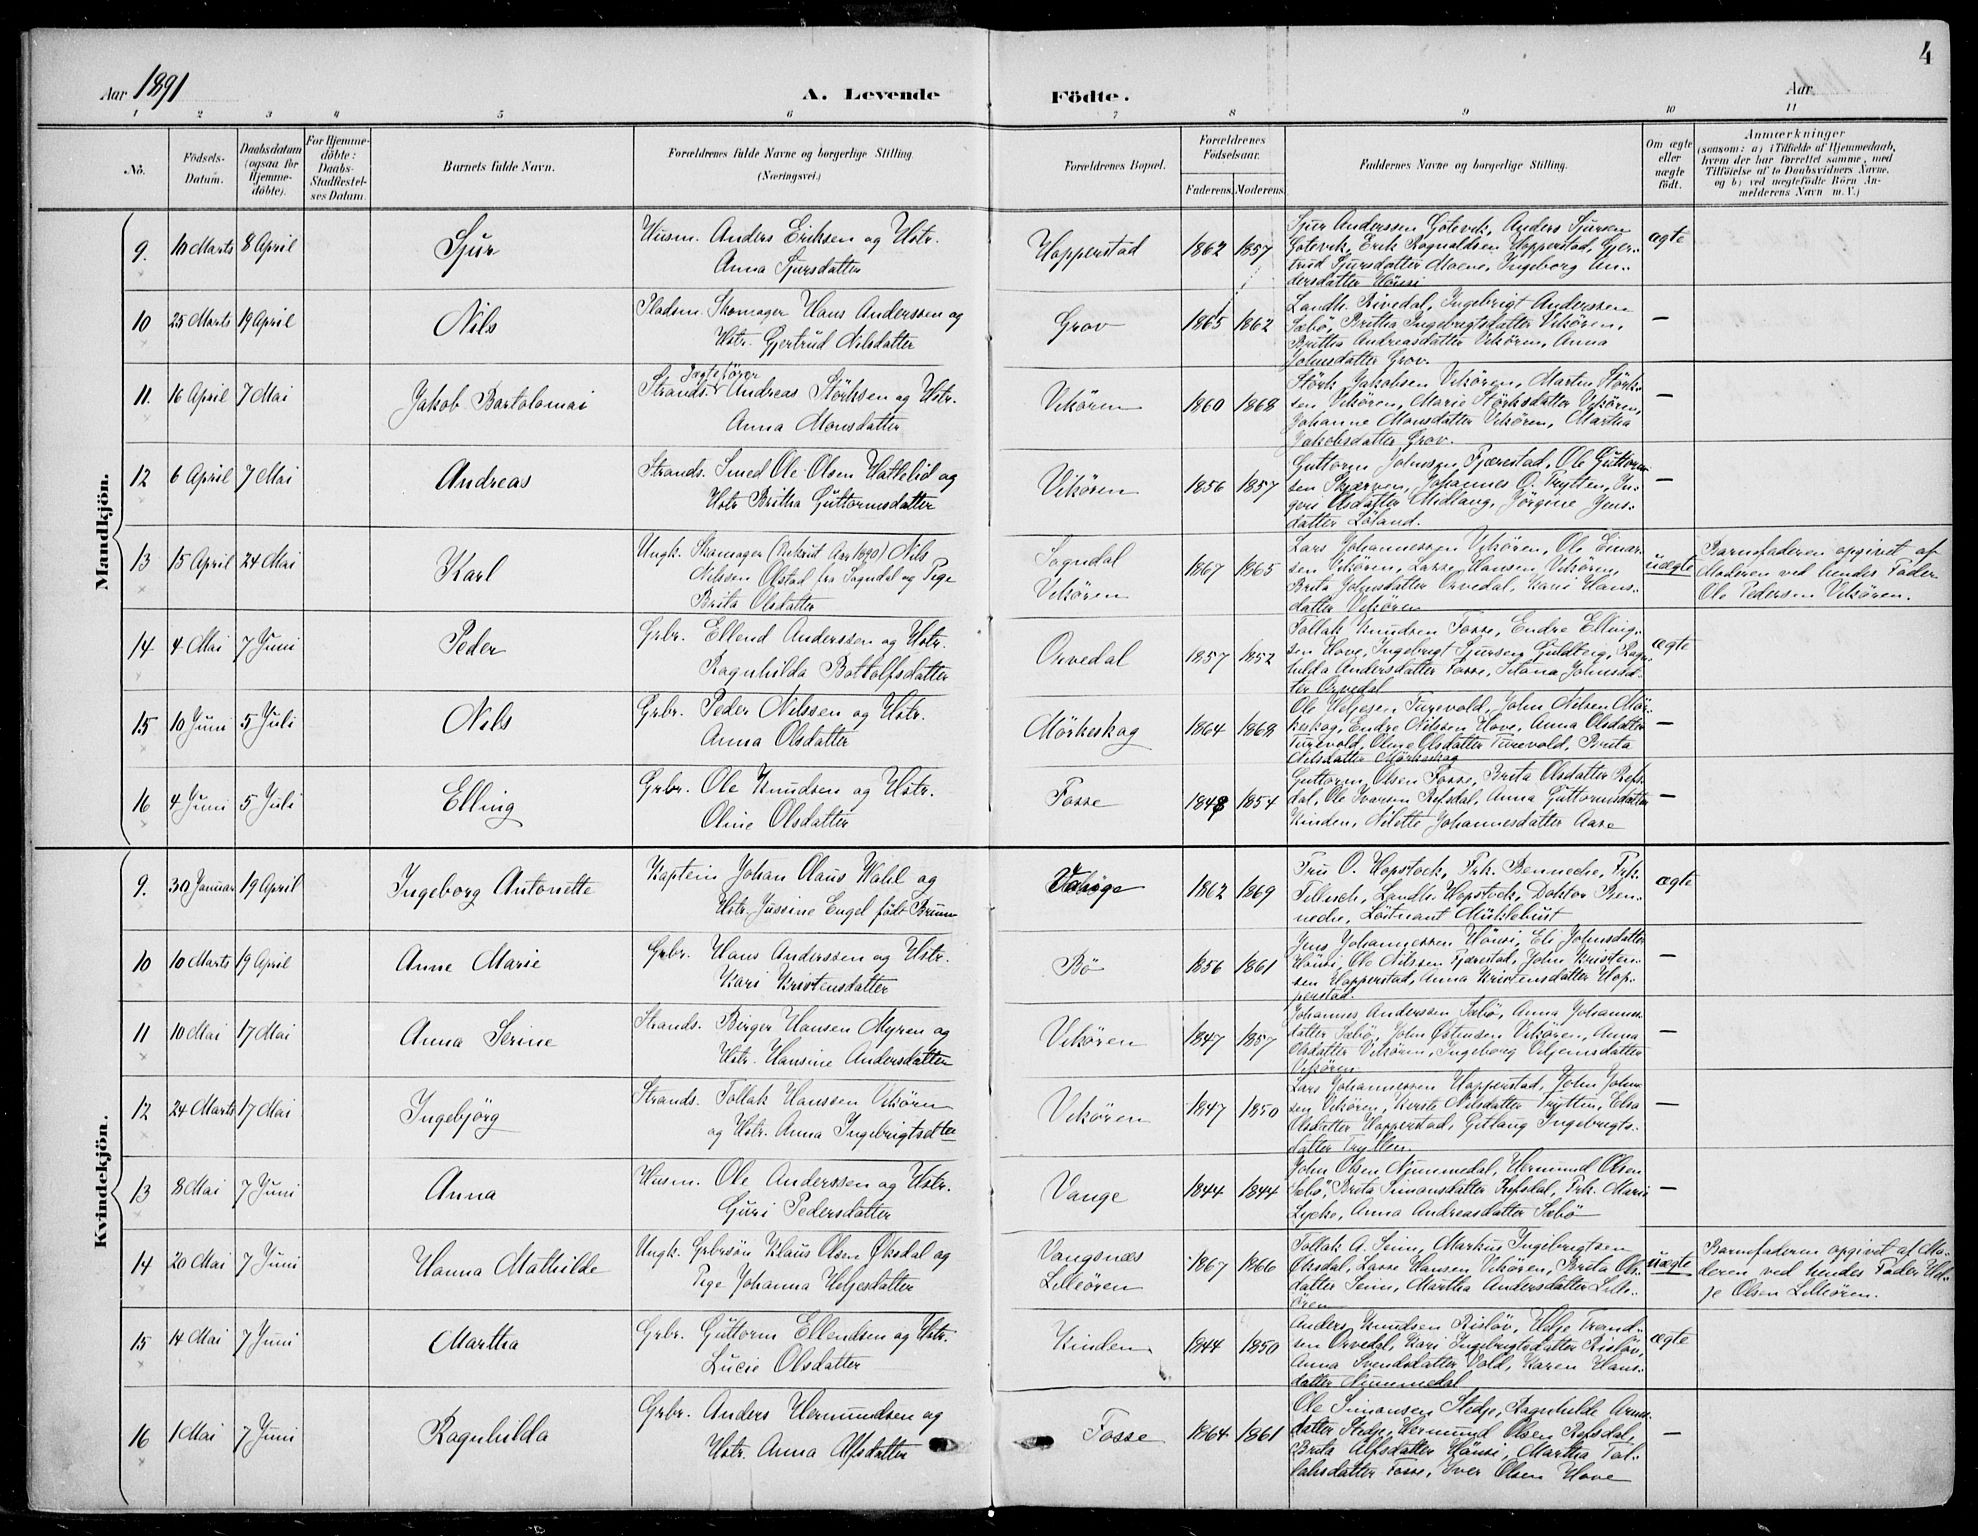 4
Aar 1891
A. Levende Födte.
Aar
1 2 3 4 5 6 7 8 9 10 11
No.
Födsels-
Datum.
Daabsdatum
(ogsaa for
Hjemme-
döbte).
For Hjemme-
döbte:
Daabs-
Stadfæstel-
ses Datum.
Barnets fulde Navn.
Forældrenes fulde Navne og borgerlige Stilling
(Næringsvei.)
Forældrenes Bopæl.
Forældrenes
Födselsaar.
Faderens. Moderens.
Faddernes Navne og borgerlige Stilling.
Om ægte
eller
uægte
födt.
Anmærkninger
(saasom: a) i Tilfælde af Hjemmedaab,
hvem der har forrettet samme, med
Tilföielse af to Daabsvidners Navne,
og b) ved uægtefödte Börn An-
melderens Navn m. V.)
Mandkjön.
9. 10 Marts 8 April
Sjur
Husm. Anders Eriksen og Hstr.
Anna Sjursdatter
Hopperstad
1862 1857
Sjur Anderssen Gotevik, Anders Sjursen
Gotevik, Erik Ragnaldsen Hopperstad, Gjer-
trud Sjursdatter Moene, Ingeborg An-
dersdatter Hönsi
ægte
10 25 Marts 19 April
Nils
Pladsm. Skomager Hans Anderssen og
Hstr. Gjertrud Nilsdatter
Grov
1865 1862
Landh. Rivedal, Ingebrigt Anderssen
Sæbö, Britha Ingebrigtsdatter Vikören,
Britha Andreasdatter Vikören, Anna
Johnsdatter Grov.
—
11. 16 April 7 Mai
Jakob Bartolomai
Jagtefører
Strands. Andreas Störksen og Hstr.
Anna Monsdatter
Vikören
1860 1868
Störk Jakobsen Vikören, Martin Störk-
sen Vikören, Marie Störksdatter Vikören,
Johanne Monsdatter Vikören, Martha
Jakobsdatter Grov.
—
12 6 April 7 Mai
Andreas
Strands. Smed Ole Olsen Hatlelid og
Hstr Britha Guttormsdatter
Vikören
1856 1857
Guttorm Johnsen Fjærestad, Ole Guttorm-
sen Skjærven, Johannes O. Trytten, In-
geri Olsdatter Midlang, Jörgine Jens-
datter Löland.
—
13 15 April 24 Mai
Karl
Ungk. Skomager (Rekrut Aar 1890) Nils
Nilssen Olstad fra Sogndal og Pige
Brita Olsdatter
Sogndal
Vikören
1867 1865
Lars Johannessen Vikören, Ole Einar-
sen Vikören, Lasse Hansen Vikören,
Brita Johnsdatter Orvedal, Kari Hans-
datter Vikören
uægte
Barnefaderen opgivet af
Moderen ved hendes Fader
Ole Pedersen Vikören.
14 4 Mai 7 Juni
Peder
Grbr. Ellend Anderssen og Hstr.
Ragnhilda Botolfsdatter
Orvedal
1857 1852
Tollak Knudsen Fosse, Endre Elling-
sen Hove, Ingebrigt Sjursen Guldberg, Ragn-
hilda Andersdatter Fosse, Johnsdat-
ter Orvedal
ægte
15 10 Juni 5 Juli
Nils
Grbr. Peder Nilssen og Hstr.
Anna Olsdatter
Mörkeskog
1864 1868
Ole Helgesen Turevold, John Nilsen Mör-
keskog, Endre Nilssen Hove, Anna Olsdatter
Turevold, Oline Olsdatter Turevold, Brita
Nilsdatter Mörkeskog
—
16 4 Juni 5 Juli
Elling
Grbr. Ole Knudsen og Hstr.
Oline Olsdatter
Fosse
1848 1854
Guttorm Olsen Fosse, Brita Olsdatter Refs-
dal, Ole Iversen Refsdal, Anna Guttormsdatter
Kinden, Nilette Johannesdatter Aase
—
Kvindekjön.
9. 30 Januar 19 April
Ingeborg Antonette
Kaptein Johan Olaus Wahl og
Hstr. Jussine Engel födt Bruun
1862 1869
Fru O. Hopstock, Frk. Bennedre, Frk.
Tillisch, Landh. Hopstock, Doktor Ben-
nedre, Löitnant Müklebust
ægte
10 10 Marts 19 April
Anne Marie
Grbr. Hans Anderssen og Hstr.
Kari Kristensdatter
Bö
1856 1861
Jens Johannessen Hönsi, Eli Johnsdatter
Hönsi, Ole Nilssen Fjærestad, John Kristen-
sen Hopperstad, Anna Kristensdatter Hop-
perstad.
—
11 10 Mai 17 Mai
Anna Serine
Strands. Birger Hansen Myren og
Hstr. Hansine Andersdatter
Vikören
1847 1857
Johannes Anderssen Sæbö, Anna Johannes-
datter Sæbö, John Østensen Vikören, Anna
Olsdatter Vikören, Ingeborg Viljemsdatter
Vikören
—
12 24 Marts 17 Mai
Ingebjörg
Strands. Tollak Hanssen Vikören
og Hstr. Anna Ingebrigtsdtter
Vikören
1847 1850
Lars Johannessen Hopperstad, John John-
sen Vikören, Kersti Nilsdatter Trytten, Elsa
Olsdatter Hopperstad, Gitlaug Ingebrigts-
datter Trytten.
—
13 8 Mai 7 Juni
Anna
Husm. Ole Anderssen og Hstr.
Guri Pedersdatter
Vange
1844 1844
John Olsen Nummedal, Hermund Olsen
Sæbö, Brita Simonsdatter Refsdal, Frk. Marie
Lycke, Anna Andreasdatter Sæbö
—
14 20 Mai 7 Juni
Hanna Mathilde
Ungk. Grbrsön Klaus Olsen Øksdal og
Pige Johanna Heljesdatter
Vangsnæs
Lilleören
1867 1866
Tollak A. Seim, Markus Ingebrigtsen
Øksdal, Lasse Hansen Vikören, Brita Ols-
datter Seim, Martha Andersdatter Lille-
ören
uægte
Barnefaderen opgivet af Mo-
deren ved hendes Fader Hel-
je Olsen Lilleören.
15 14 Mai 7 Juni
Martha
Grbr. Guttorm Ellendsen og Hstr.
Lucie Olsdatter
Kinden
1844 1850
Anders Knudsen Risløv, Helje Trond-
sen Orvedal, Kari Ingebrigtsdatter Risløv,
Anna Svendsdatter Vold, Karen Hans-
datter Nummedal
ægte
16 1 Mai 7 Juni
Ragnhilda
Grbr. Anders Hermundsen og
Hstr. Anna Alfsdatter
Fosse
1864 1861
Ole Simonsen Stedje, Ragnhilde Arnes-
datter Stedje, Hermund Olsen Refsdal,
Brita Alfsdatter Hönsi, Martha Tol-
laksdatter Fosse, Iver Olsen Hove
—